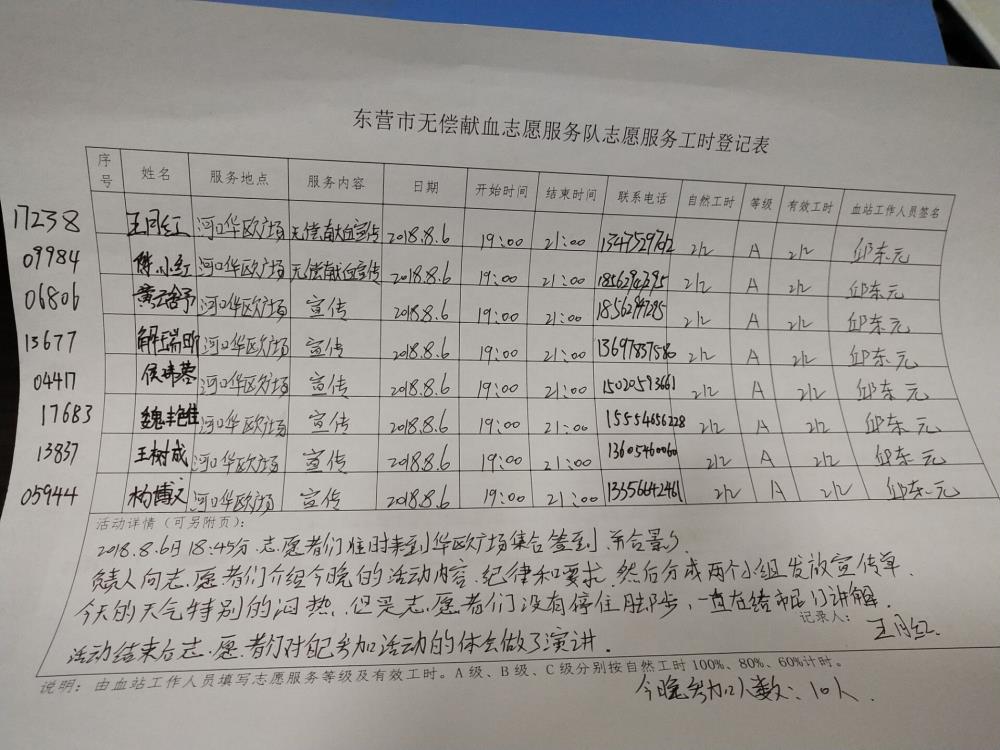 东营市无偿献血志愿服务队志愿服务工时登记表
序号 姓名 服务地点 服务内容 日期 开始时间 结束时间 联系电话 自然工时 等级 有效工时 血站工作人员签名
17238 王月红 河口华欧广场 无偿献血宣传 2018.8.6 19:00 21:00 2h A 2h 邱东元
09984 陈小红 河口华欧广场 无偿献血宣传 2018.8.6 19:00 21:00 2h A 2h 邱东元
06806 河口华欧广场 宣传 2018.8.6 19:00 21:00 2h A 2h 邱东元
13677 解瑞昕 河口华欧广场 宣传 2018.8.6 19:00 21:00 13697857580 2h A 2h 邱东元
04417 侯晴蓉 河口华欧广场 宣传 2018.8.6 19:00 21:00 15020593661 2h A 2h 邱东元
17683 魏艳 河口华欧广场 宣传 2018.8.6 19:00 21:00 15554656228 2h A 2h 邱东元
13837 王树成 河口华欧广场 宣传 2018.8.6 19:00 21:00 13605460060 2h A 2h 邱东元
05944 杨博文 河口华欧广场 宣传 2018.8.6 19:00 21:00 13356442461 2h A 2h 邱东元
活动详情(可另附页):
2018.8.6日18:45分,志愿者们准时来到华欧广场集合签到,并合影。
负责人向志愿者们介绍今晚的活动内容、纪律和要求,然后分成两个小组发放宣传单.
今天的天气特别的闷热,但是志愿者们没有停住脚步,一直在给市民们讲解.
记录人: 王月红
活动结束后志愿者们对自己参加活动的体会做了演讲.
说明:由血站工作人员填写志愿服务等级及有效工时。A级、B级、C级分别按自然工时100%、80%、60%计时。
今晚参加人数:10人.